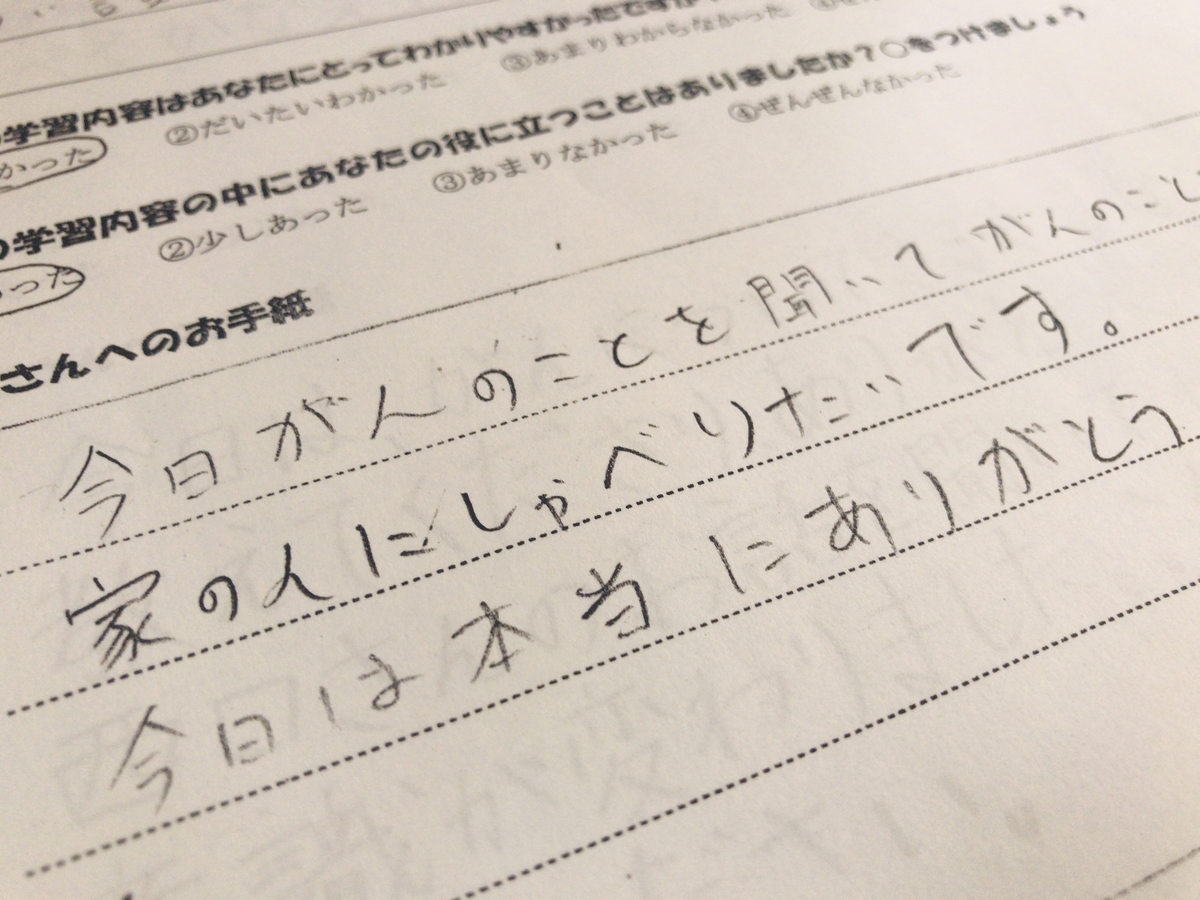 学習内容はあなたにとってわかりやすかったですか
かった ②だいたいわかった ③あまりわからなかった
学習内容の中にあなたの役に立つことはありましたか？○をつけましょう
った ②少しあった ③あまりなかった ④ぜんぜんなかった
さんへのお手紙
今日がんのことを聞いてがんのこと
家の人にしゃべりたいです。
今日は本当にありがとう